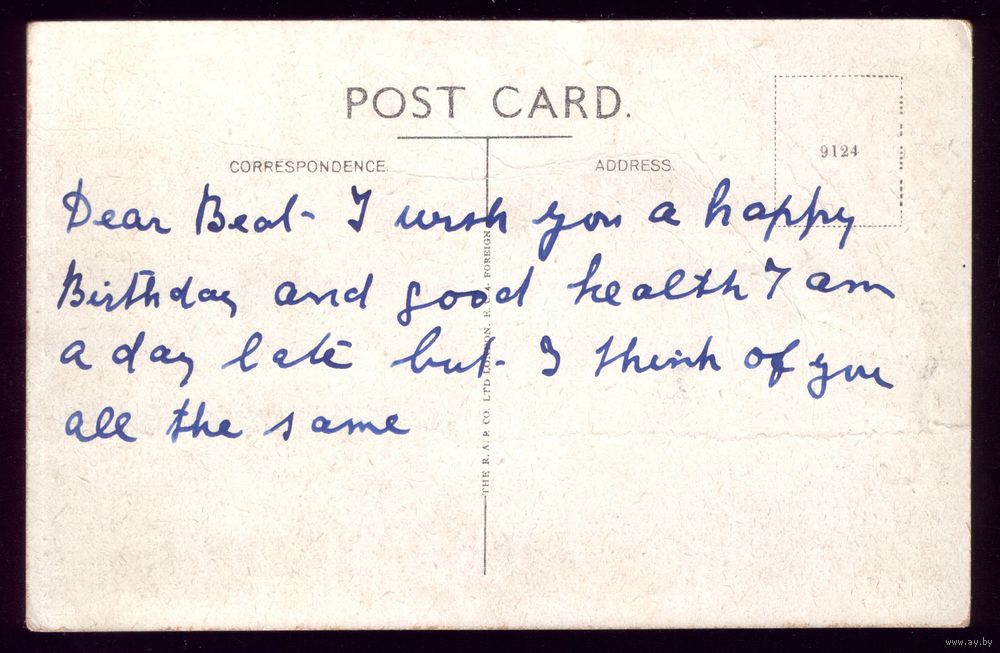 POST CARD.
CORRESPONDENCE.
ADDRESS.
9124
Dear Beat - I wish you a happy
Birthday and good health I am
a day late but - I think of you
all the same
THE R.A.P. CO. LTD LONDON. E.C.4. FOREIGN
www.ay.by